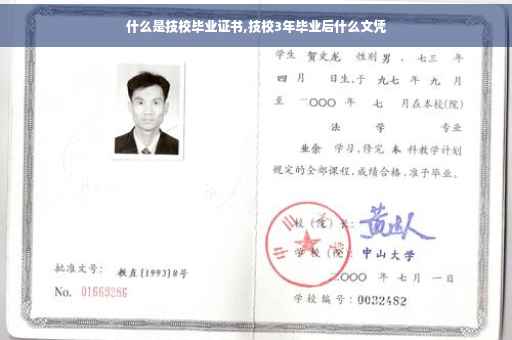 什么是技校毕业证书,技校3年毕业后什么文凭
学生 贺文龙 性别 男 、七三 年
四 月 日生,于 九七 年 九 月
至 二〇〇〇 年 七 月在本校(院)
法 学 专业
业余 学习,修完 本 科教学计划
规定的全部课程,成绩合格,准予毕业。
校(院)长:
学校(院): 中山大学
二〇〇〇 年 七 月 一 日
学校编号: 0032482
批准文号: 教直[1993]8号
No. 01669286